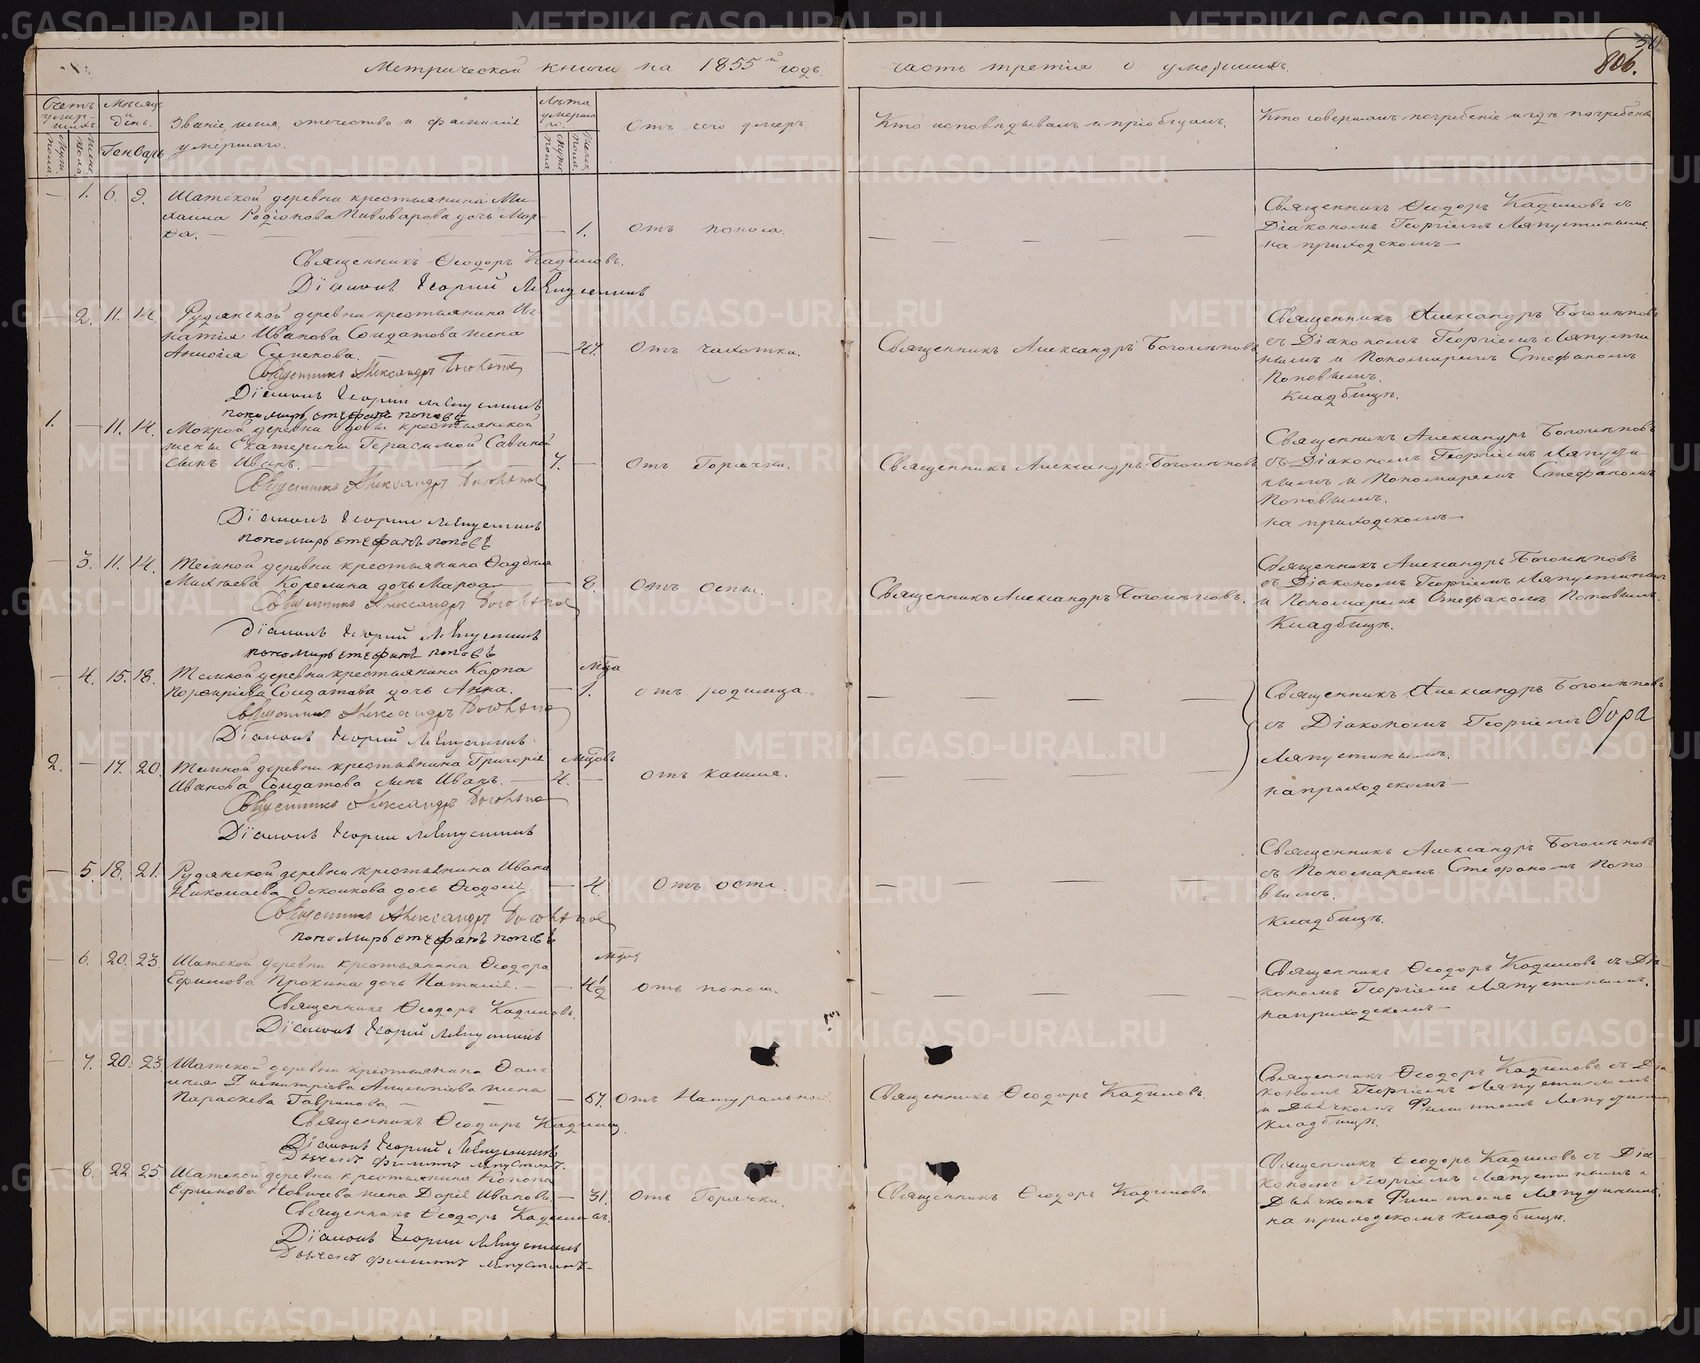 Метрической книги на 1855й годъ
часть третія о умершихъ
806.
Счетъ умершихъ.
Мужс. пола.
Женс. пола.
Мѣсяцъ и день.
Генварь
Званіе, имя, отечество и фамилія
умершаго.
Лѣта умершаго.
Мужс. пола
Женс. пола.
Отъ чего умеръ.
Кто исповѣдывалъ и пріобщалъ.
Кто совершалъ погребеніе и гдѣ погребены
— 1. 6. 9. Шатской деревни крестьянина Ми-
хаила Родіонова Пивоварова дочь Мар-
ѳа. — 1. Отъ поноса.
Священникъ Ѳеодоръ Кадиловъ съ
Діакономъ Георгіемъ Ляпустинымъ
на приходскомъ —
Священникъ Ѳеодоръ Кадиловъ.
Діаконъ Георгий Ляпустинъ
— 2. 11. 14. Рудянской деревни крестьянина Иг-
натія Иванова Солдатова жена
Семенова. — 44. Отъ чахотки.
Священникъ Александръ Боголѣповъ
Священникъ Александръ Боголѣповъ
съ Діакономъ Георгіемъ Ляпусти-
нымъ и Пономаремъ Стефаномъ
Поповымъ.
Кладбищѣ.
Священникъ Александръ Боголѣповъ
Діаконъ Георгий Ляпустинъ
пономарь стефанъ поповъ
1. — 11. 14. Мокрой деревни вдовы крестьянской
жены Екатерины Герасимой Савиной
сынъ Иванъ. 7. — Отъ Горячки.
Священникъ Александръ Боголѣповъ
Священникъ Александръ Боголѣповъ
съ Діакономъ Георгіемъ Ляпусти-
нымъ и Пономаремъ Стефаномъ
Поповымъ.
на приходскомъ —
Священникъ Александръ Боголѣповъ
Діаконъ Георгий Ляпустинъ
пономарь стефанъ поповъ
— 3. 11. 14. Темной деревни крестьянина
Корелина дочь Марѳа — 8. Отъ оспы.
Священникъ Александръ Боголѣповъ.
Священникъ Александръ Боголѣповъ
съ Діакономъ Георгіемъ Ляпустинымъ
и Пономаремъ Стефаномъ Поповымъ.
Кладбищѣ.
Священникъ Александръ Боголѣповъ
Діаконъ Георгий Ляпустинъ
пономарь стефанъ поповъ
— 4. 15. 18. Темной деревни крестьянина Карпа
Порфирьева Солдатова дочь Анна. — Мца 1. отъ родимца.
Священникъ Александръ Боголѣповъ
съ Діакономъ Георгіемъ оора
Ляпустинымъ.
на приходскомъ —
Священникъ Александръ Боголѣповъ
Діаконъ Георгий Ляпустинъ
2. — 17. 20. Темной деревни крестьянина Григорія
Иванова Солдатова сынъ Иванъ. Мцовъ 4. — отъ кашля.
Священникъ Александръ Боголѣповъ
Діаконъ Георгий Ляпустинъ
— 5. 18. 21. Рудянской деревни крестьянина Ивана
Николаева Осколкова дочь Ѳеодосія — 4. Отъ оспы.
Священникъ Александръ Боголѣповъ
съ Пономаремъ Стефаномъ Попо-
вымъ.
кладбищѣ.
Священникъ Александръ Боголѣповъ
пономарь стефанъ поповъ
— 6. 20. 23. Шатской деревни крестьянина Ѳеодора
Ефимова Пронина дочь Наталія. — 4½ Отъ поноса.
Священникъ Ѳеодоръ Кадиловъ съ Діа-
кономъ Георгіемъ Ляпустинымъ.
на приходскомъ —
Священникъ Ѳеодоръ Кадиловъ.
Діаконъ Георгий Ляпустинъ
— 7. 20. 23. Шатской деревни крестьянина
Димитріева жена
Параскева Гаврилова — 67. Отъ Натуральной.
Священникъ Ѳеодоръ Кадиловъ.
Священникъ Ѳеодоръ Кадиловъ съ Діа-
кономъ Георгіемъ Ляпустинымъ
и Дьячкомъ Филиппомъ Ляпустинымъ
кладбищѣ.
Священникъ Ѳеодоръ Кадиловъ
Діаконъ Георгий Ляпустинъ
Дьячекъ Филиппъ Ляпустинъ.
— 8. 22. 25. Шатской деревни крестьянина
Ефимова жена Дарія Иванова. — 31. Отъ Горячки.
Священникъ Ѳеодоръ Кадиловъ.
Священникъ Ѳеодоръ Кадиловъ съ Діа-
кономъ Георгіемъ Ляпустинымъ и
Дьячкомъ Филиппомъ Ляпустинымъ.
на приходскомъ кладбищѣ.
Священникъ Ѳеодоръ Кадиловъ.
Діаконъ Георгий Ляпустинъ
Дьячекъ Филиппъ Ляпустинъ
METRIKI.GASO-URAL.RU